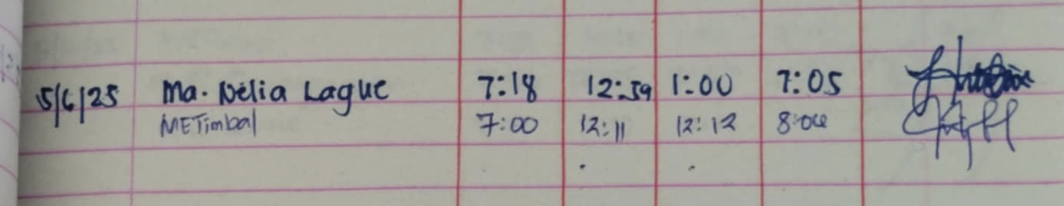 5/6/25 Ma. Nelia Lague 7:18 12:59 1:00 7:05
METimbal 7:00 12:11 12:12 8:04